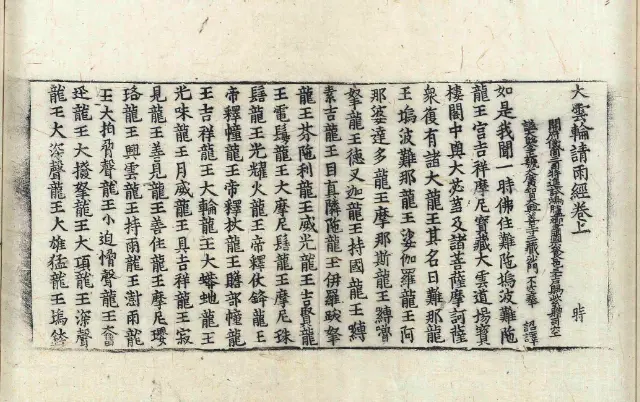 大雲輪請雨經卷上 時
開府儀同三司特進試鴻臚卿肅國公食邑三千戶賜紫贈司空
諡大鑒正號大廣智大興善寺三藏沙門不空奉 詔譯
如是我聞一時佛住難陁塢波難陁
龍王宮吉祥摩尼寶藏大雲道場寶
樓閣中與大苾芻及諸菩薩摩訶薩
衆復有諸大龍王其名曰難那龍
王塢波難那龍王娑伽羅龍王阿
那婆達多龍王摩那斯龍王嚩嚕
拏龍王德叉迦龍王持國龍王嚩
素吉龍王目真隣陁龍王伊羅跋拏
龍王芬陁利龍王威光龍王吉賢龍
王電鬘龍王大摩尼髻龍王摩尼珠
髻龍王光耀火龍王帝釋仗鋒龍王
帝釋幢龍王帝釋杖龍王贍部幢龍
王吉祥龍王大輪龍王大蟒虵龍王
光味龍王月威龍王具吉祥龍王寂
見龍王善見龍王善住龍王摩尼瓔
珞龍王興雲龍王持雨龍王澍雨龍
王大拍脅聲龍王小迫憎聲龍王
龍王大撥拏龍王大項龍王深聲
龍王大深聲龍王大雄猛龍王塢